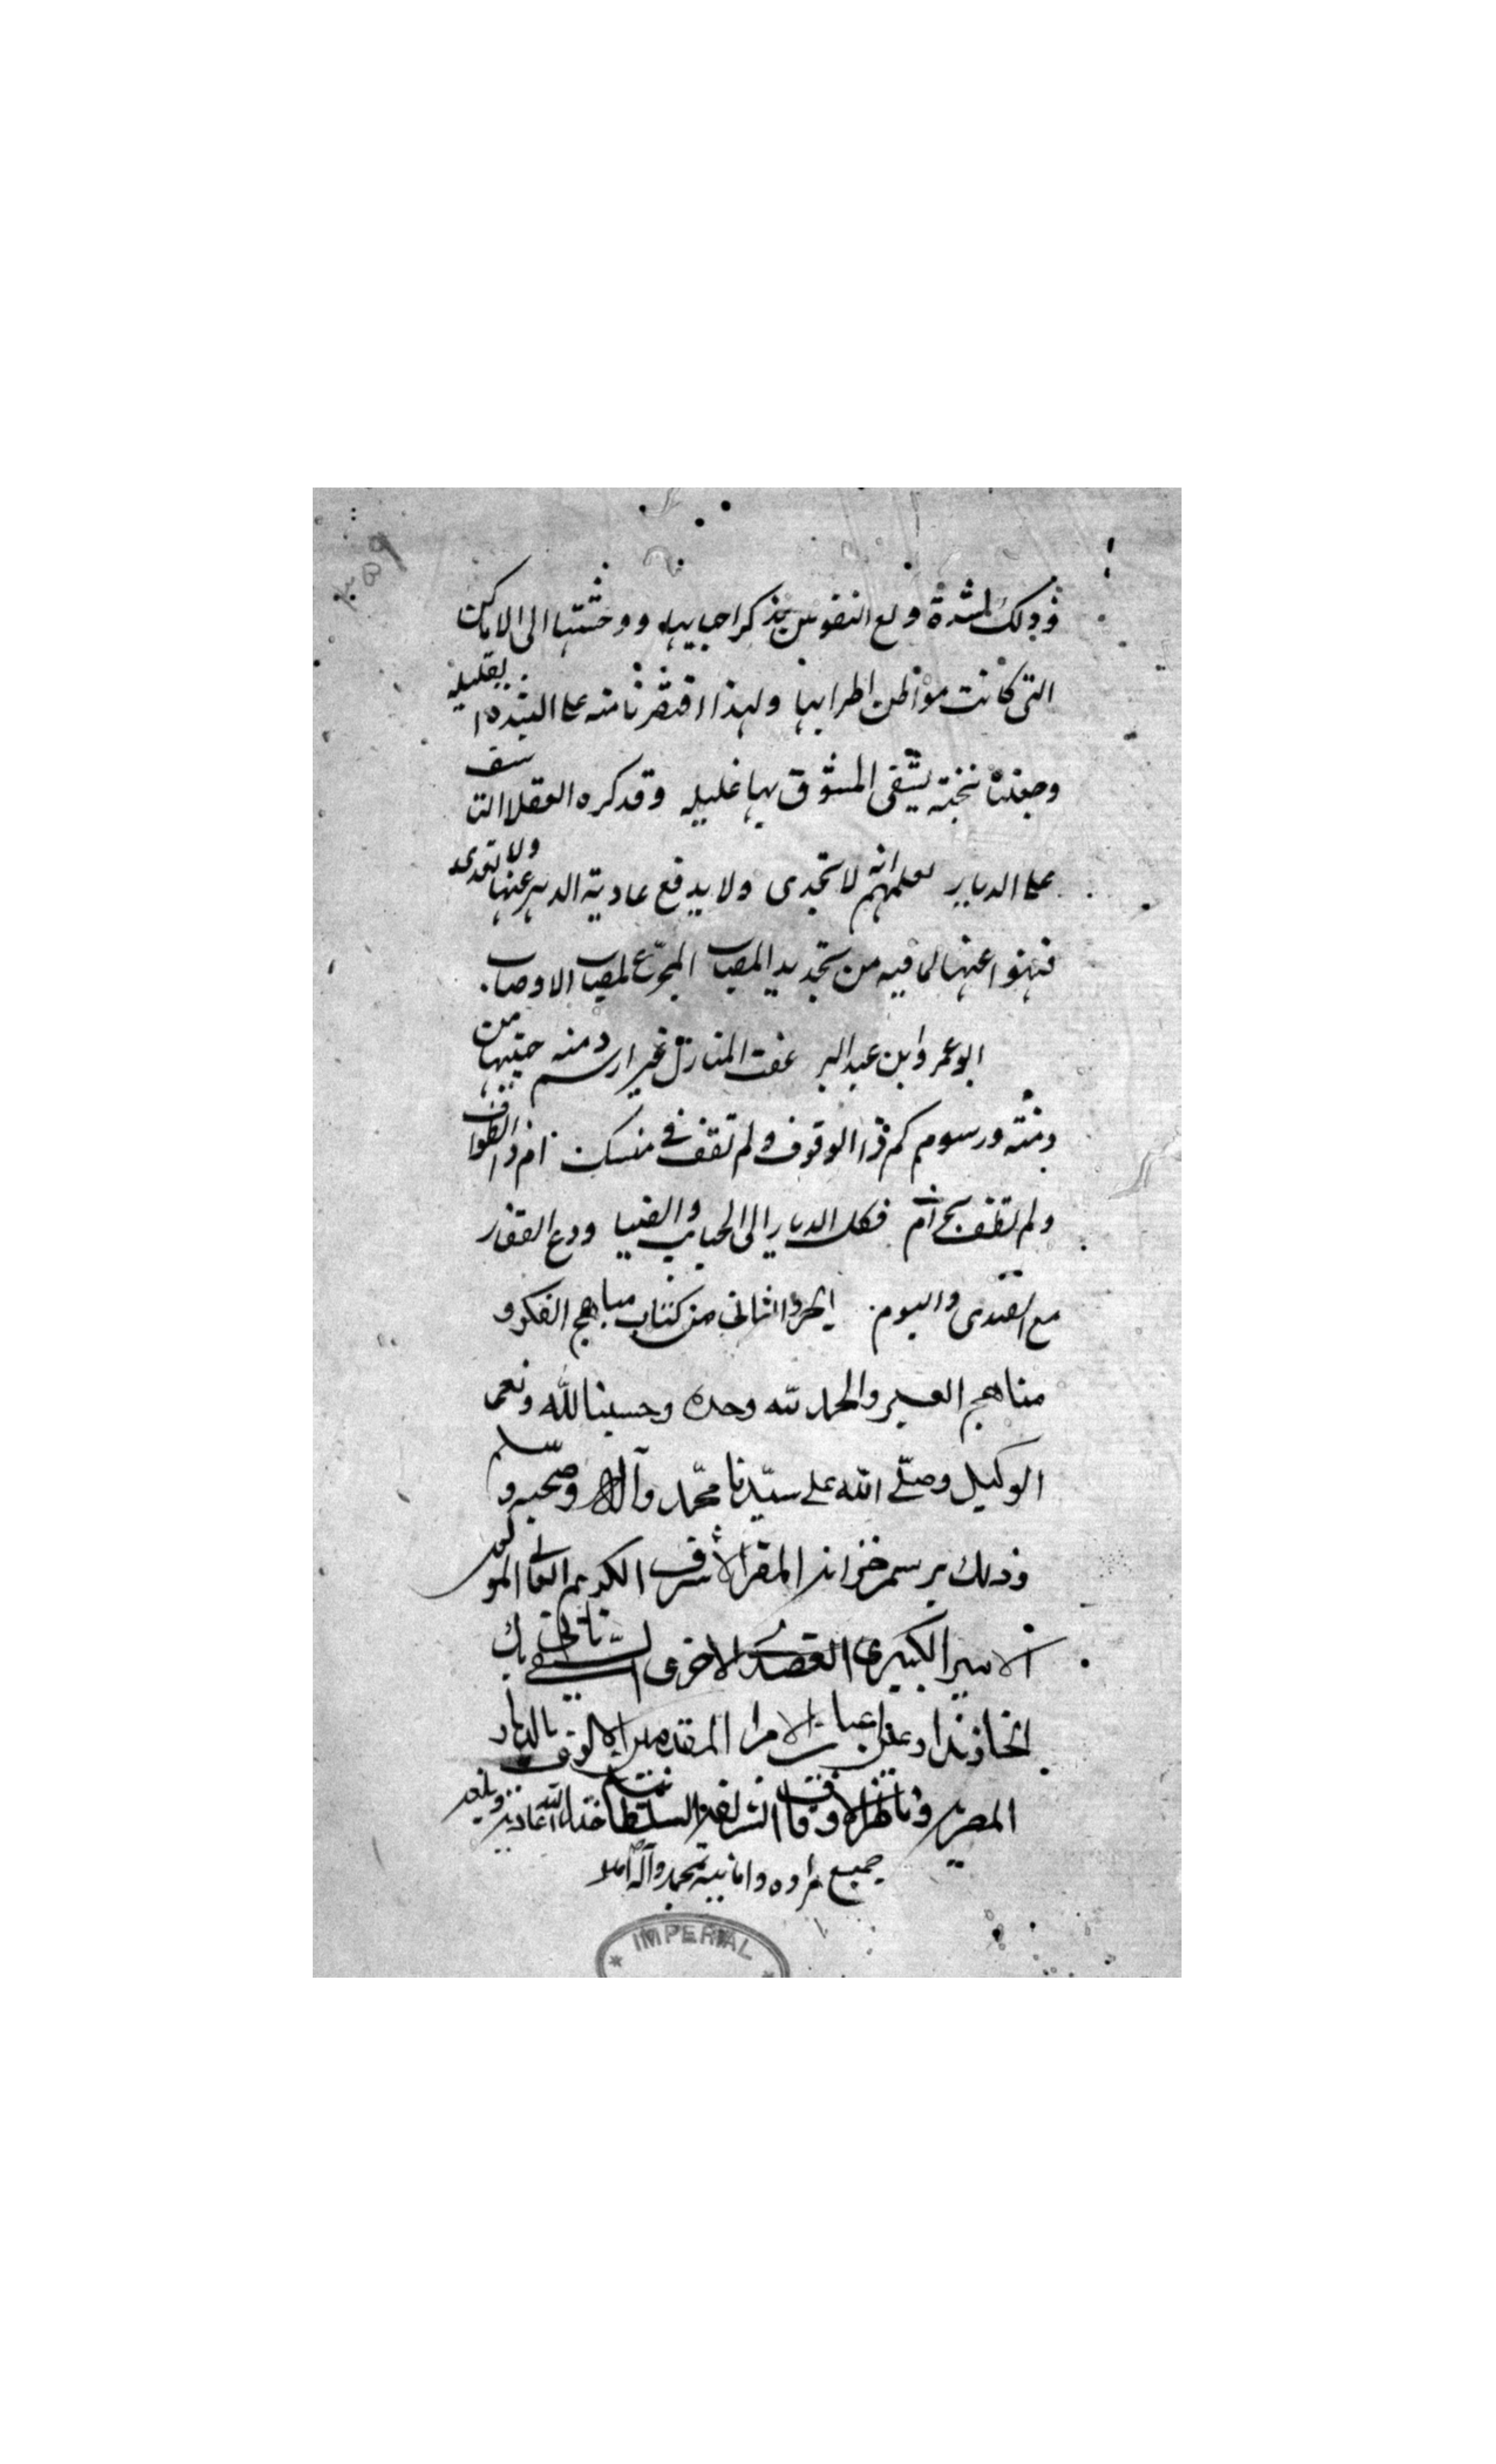 وذلك لشدة ولع النفوس بذكر احبابها ووحشتها الى الاماكن
التى كانت مواطن اطرابها ولهذا اقتصرنا منه على النبذه القليله
وجعلناه نخبة يشفى المشوق بها غليله وقد كره العقلا التاسف
على الديار لعلمهم انه لا تجدى ولا يدفع عادية الدهر عنها ولا تعدى
فنهوا عنها لما فيه من تجديد المصاب المجرع لمصاب الاوصاب
ابو عمرو ابن عبد البر عفت المنازل غير ارسم دمنه حييتها من
دمنة ورسوم كم ذا الوقوف ولم تقف في منسك ام ذا الطواف
ولم تطف بحرام فكل الديار الى الجنايب والصبا ودع القفار
مع الصدى والبوم الجزو الثانى من كتاب مباهج الفكر و
مناهج العبر والحمد لله وحده وحسبنا الله ونعم
الوكيل وصلى الله على سيدنا محمد وآله وصحبه وسلم
وذلك برسم خزانة المقر الاشرف الكريم العالى المولوى
الاميرى الكبيرى العضدى الاخوى السيفى تانى بك
الخازندار اعيان الامرا المقدمين الالوف بالديار
المصرية وناظر الاوقاف الشريفة السلطانية
جميع مراده وامانيه بمحمد وآله
IMPERIAL